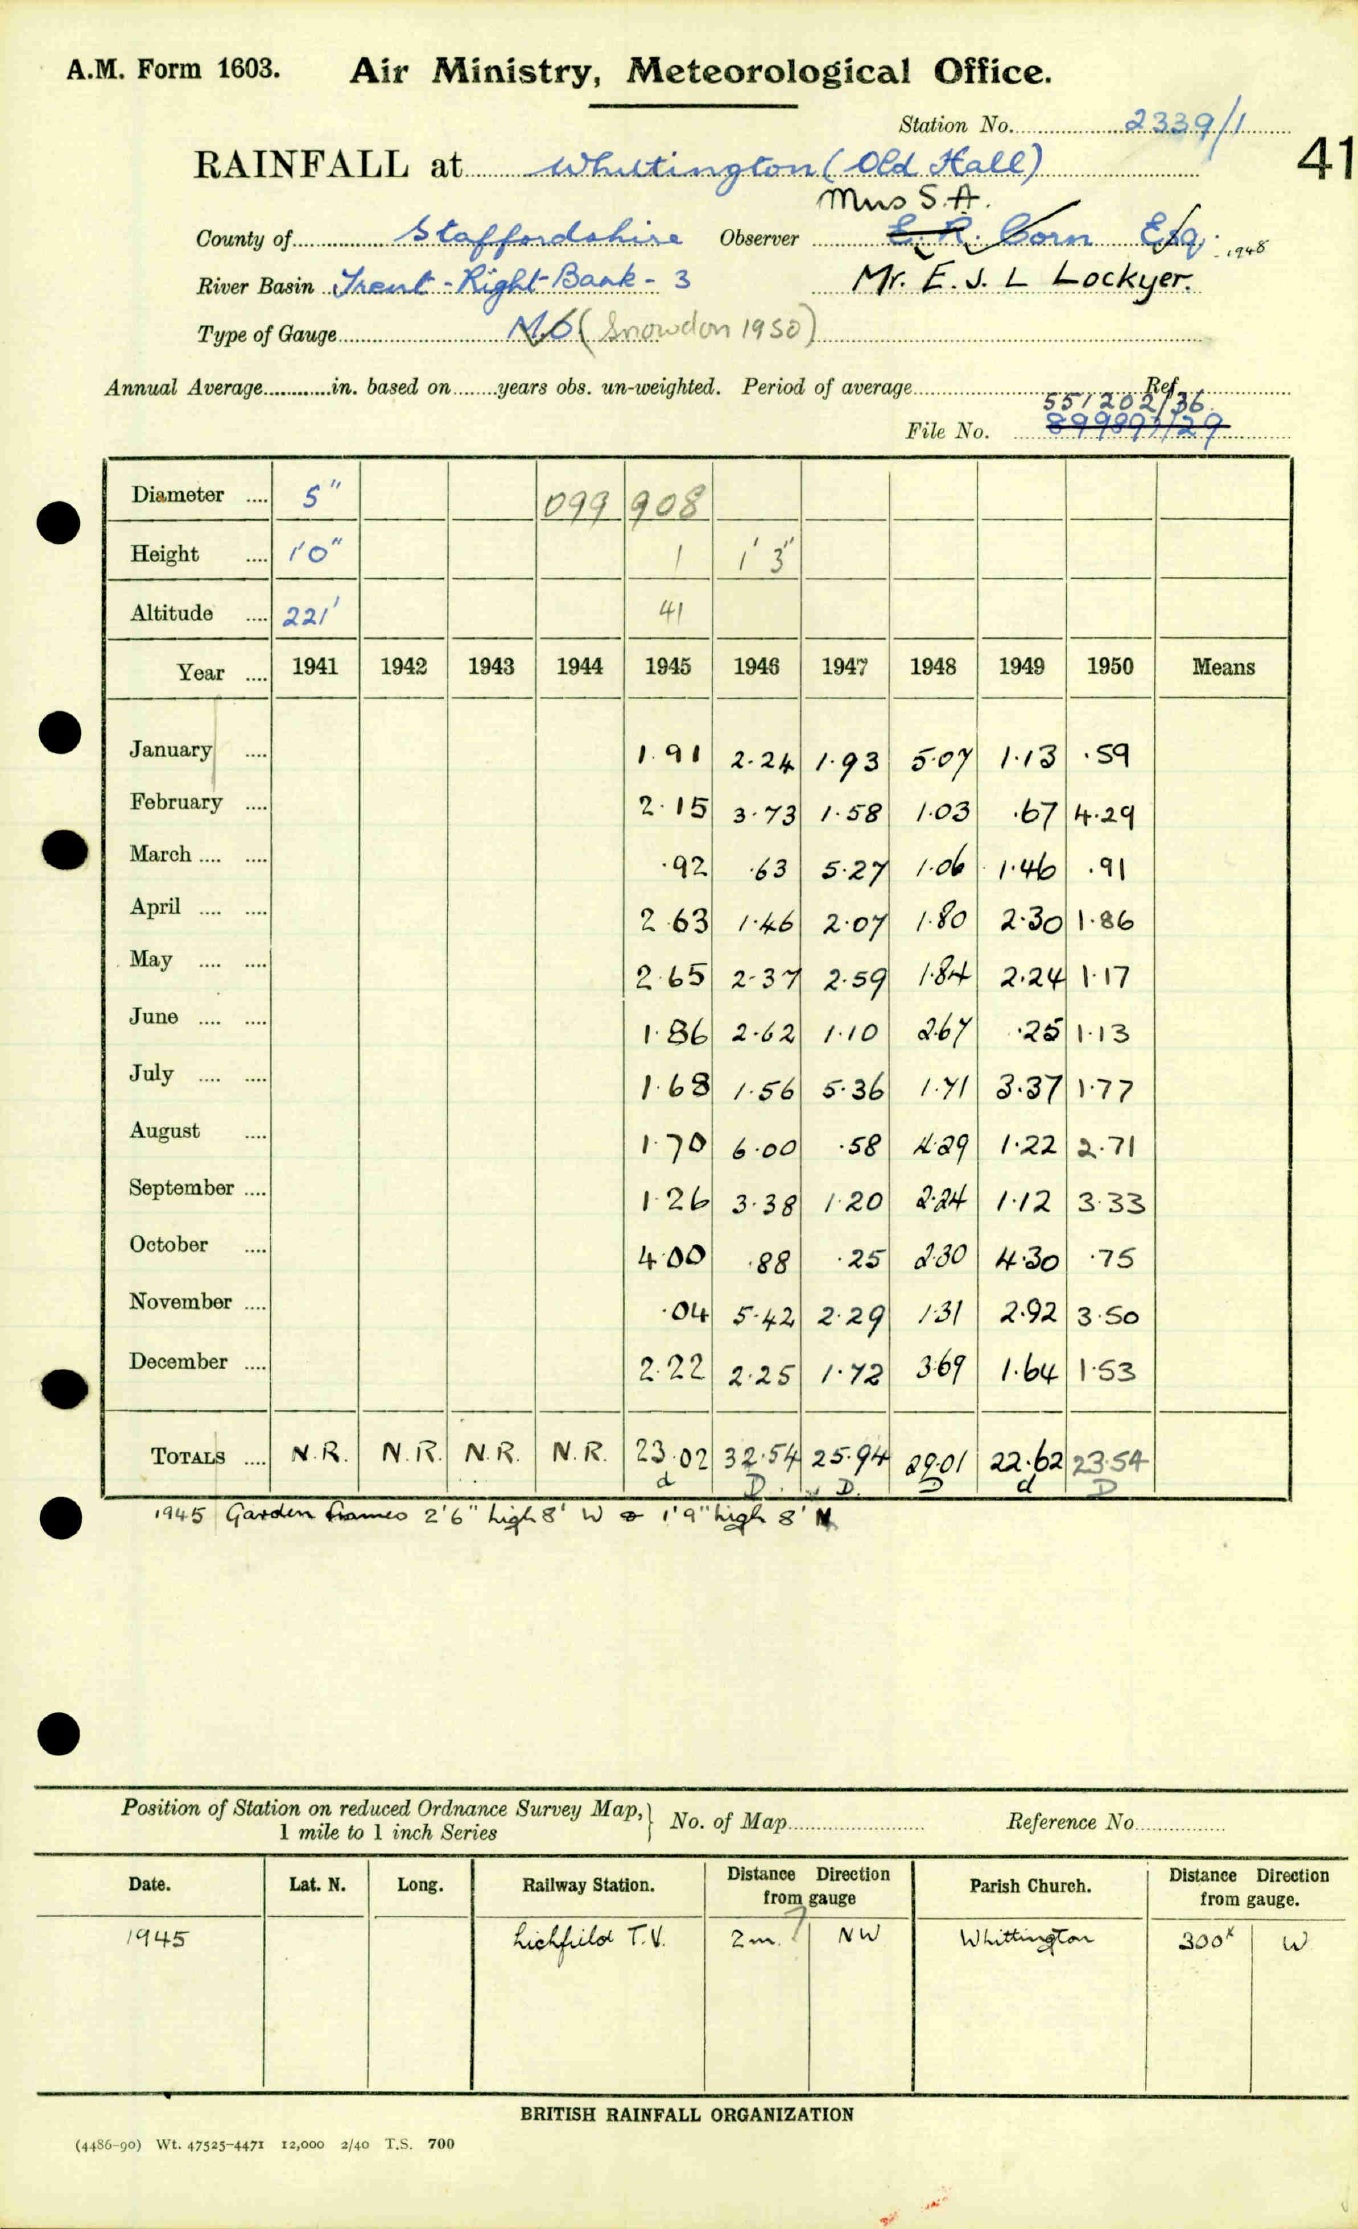 A.M. Form 1603. Air Ministry, Meteorological Office.
Station No. 2339/1
41
RAINFALL at Whittington (Old Hall)
Mrs S.A.
County of Staffordshire Observer E. R. Corn Esq. 1948
River Basin Trent - Right Bank - 3 Mr. E. J. L Lockyer.
Type of Gauge M.O (Snowdon 1950)
Annual Average in. based on years obs. un-weighted. Period of average Ref
551202/36
File No. 899893/29
Diameter 5" 099 908
Height 1'0" 1 1' 3"
Altitude 221' 41
Year 1941 1942 1943 1944 1945 1946 1947 1948 1949 1950 Means
January 1.91 2.24 1.93 5.07 1.13 .59
February 2.15 3.73 1.58 1.03 .67 4.29
March .92 .63 5.27 1.06 1.46 .91
April 2.63 1.46 2.07 1.80 2.30 1.86
May 2.65 2.37 2.59 1.84 2.24 1.17
June 1.86 2.62 1.10 2.67 .25 1.13
July 1.68 1.56 5.36 1.71 3.37 1.77
August 1.70 6.00 .58 4.29 1.22 2.71
September 1.26 3.38 1.20 2.24 1.12 3.33
October 4.00 .88 .25 2.30 4.30 .75
November .04 5.42 2.29 1.31 2.92 3.50
December 2.22 2.25 1.72 3.69 1.64 1.53
TOTALS N.R. N.R. N.R. N.R. 23.02 32.54 25.94 29.01 22.62 23.54
d D D D d D
1945 Garden frames 2'6" high 8' W & 1'9" high 8' N
Position of Station on reduced Ordnance Survey Map, 1 mile to 1 inch Series } No. of Map Reference No.
Date. Lat. N. Long. Railway Station. Distance Direction from gauge Parish Church. Distance Direction from gauge.
1945 Lichfield T.V. 2m. ? NW Whittington 300x W
BRITISH RAINFALL ORGANIZATION
(4486-90) Wt. 47525-4471 12,000 2/40 T.S. 700